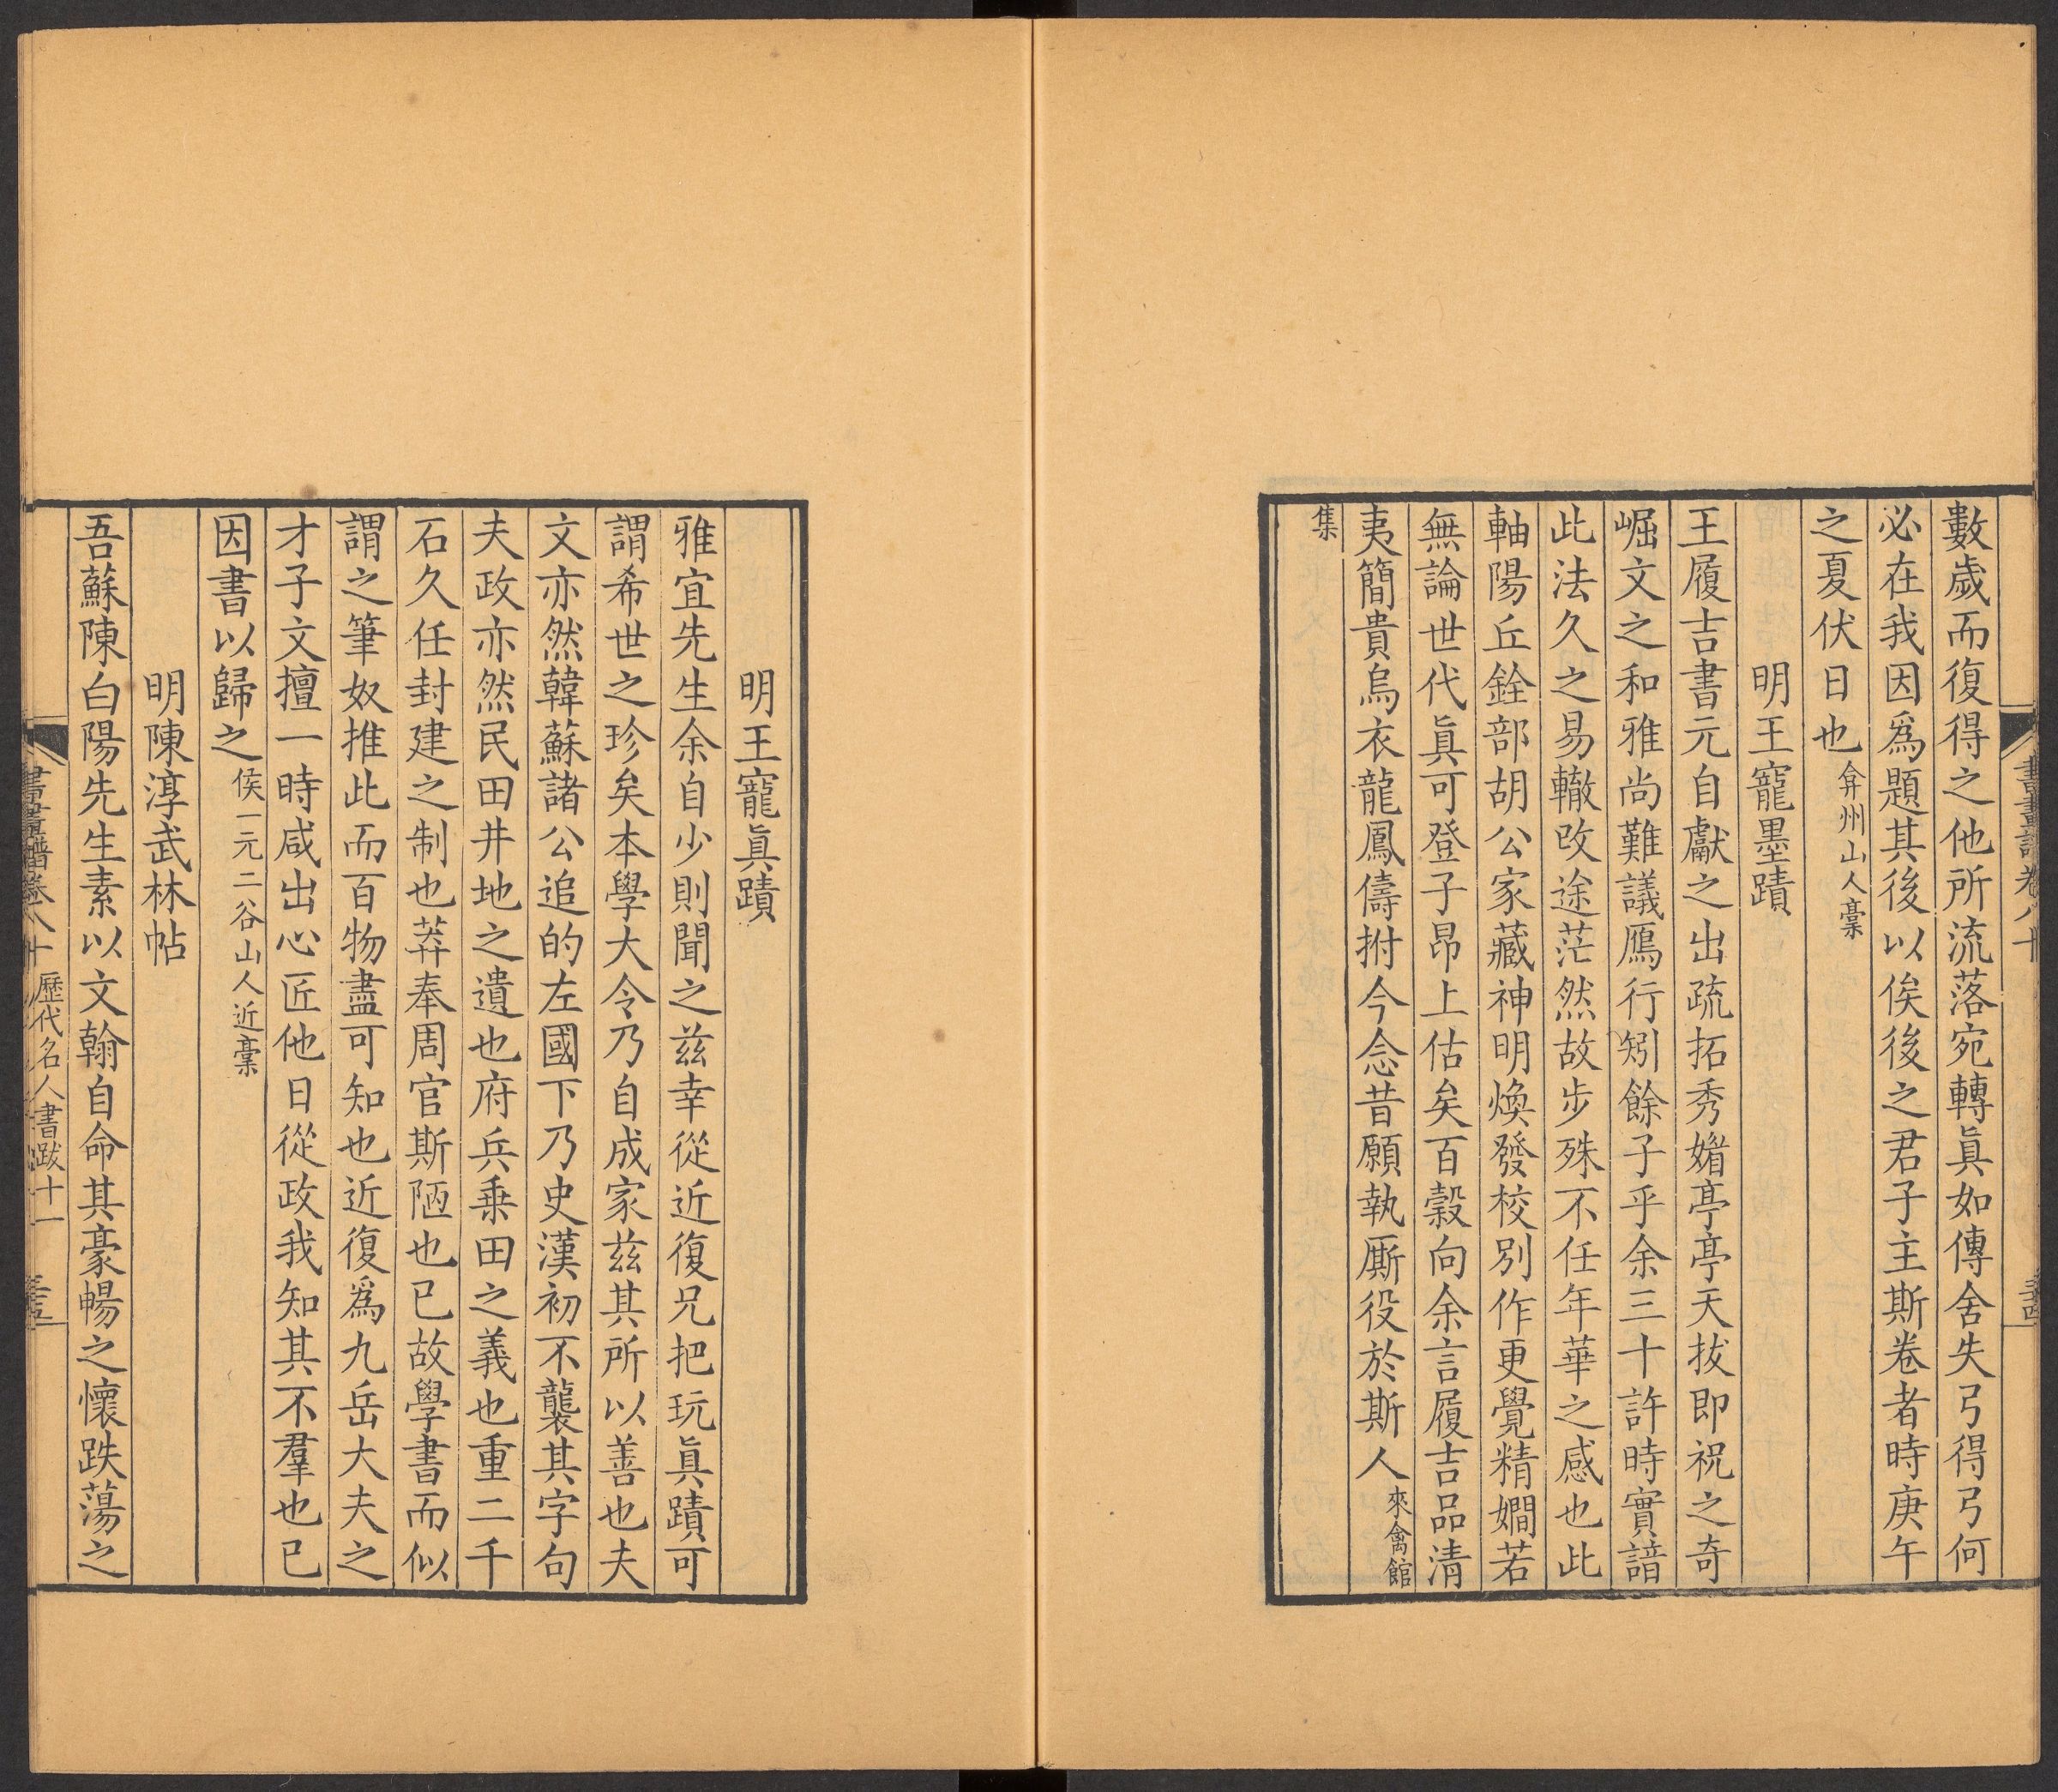 數歲而復得之他所流落宛轉眞如傳舍失弓得弓何
必在我因爲題其後以俟後之君子主斯卷者時庚午
之夏伏日也弇州山人稾
明王寵墨蹟
王履吉書元自獻之出疏拓秀媚亭亭天拔即祝之奇
崛文之和雅尚難議鴈行矧餘子乎余三十許時實諳
此法久之易轍改途茫然故步殊不任年華之感也此
軸陽丘銓部胡公家藏神明煥發校別作更覺精嫺若
無論世代眞可登子昂上估矣百榖向余言履吉品清
夷簡貴烏衣龍鳳儔拊今念昔願執厮役於斯人來禽館
集
明王寵眞蹟
雅宜先生余自少則聞之兹幸從近復兄把玩眞蹟可
謂希世之珍矣本學大令乃自成家兹其所以善也夫
文亦然韓蘇諸公追的左國下乃史漢初不襲其字句
夫政亦然民田井地之遺也府兵乗田之義也重二千
石久任封建之制也莽奉周官斯陋也已故學書而似
謂之筆奴推此而百物盡可知也近復爲九岳大夫之
才子文擅一時咸出心匠他日從政我知其不羣也已
因書以歸之侯一元二谷山人近稾
明陳淳武林帖
吾蘇陳白陽先生素以文翰自命其豪暢之懷跌蕩之
書畫譜卷八十 歷代名人書跋十一